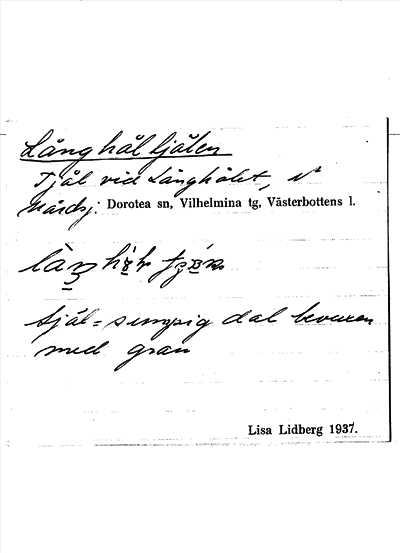 Långhåltjälen
Tjäl vid Långhålet, N
Mårdsj. Dorotea sn, Vilhelmina tg, Västerbottens l.
tjäl = sumpig dal bevuxen
med gran
Lisa Lidberg 1937.